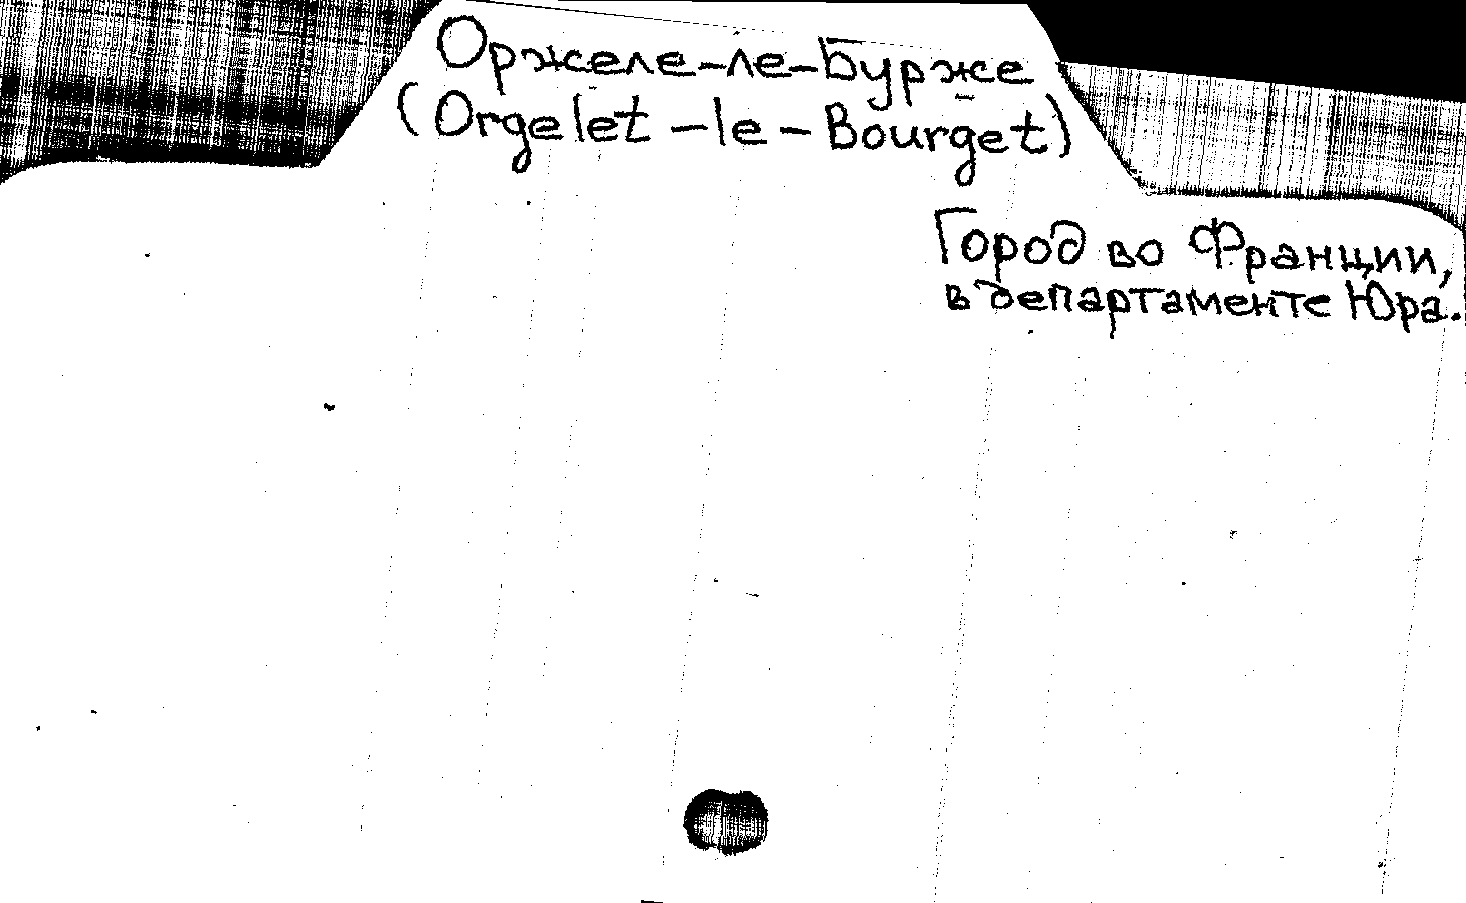 Оржеле-ле-Бурже
(Orgelet-le-Bourget)
Город во Франции,
в департаменте Юра.